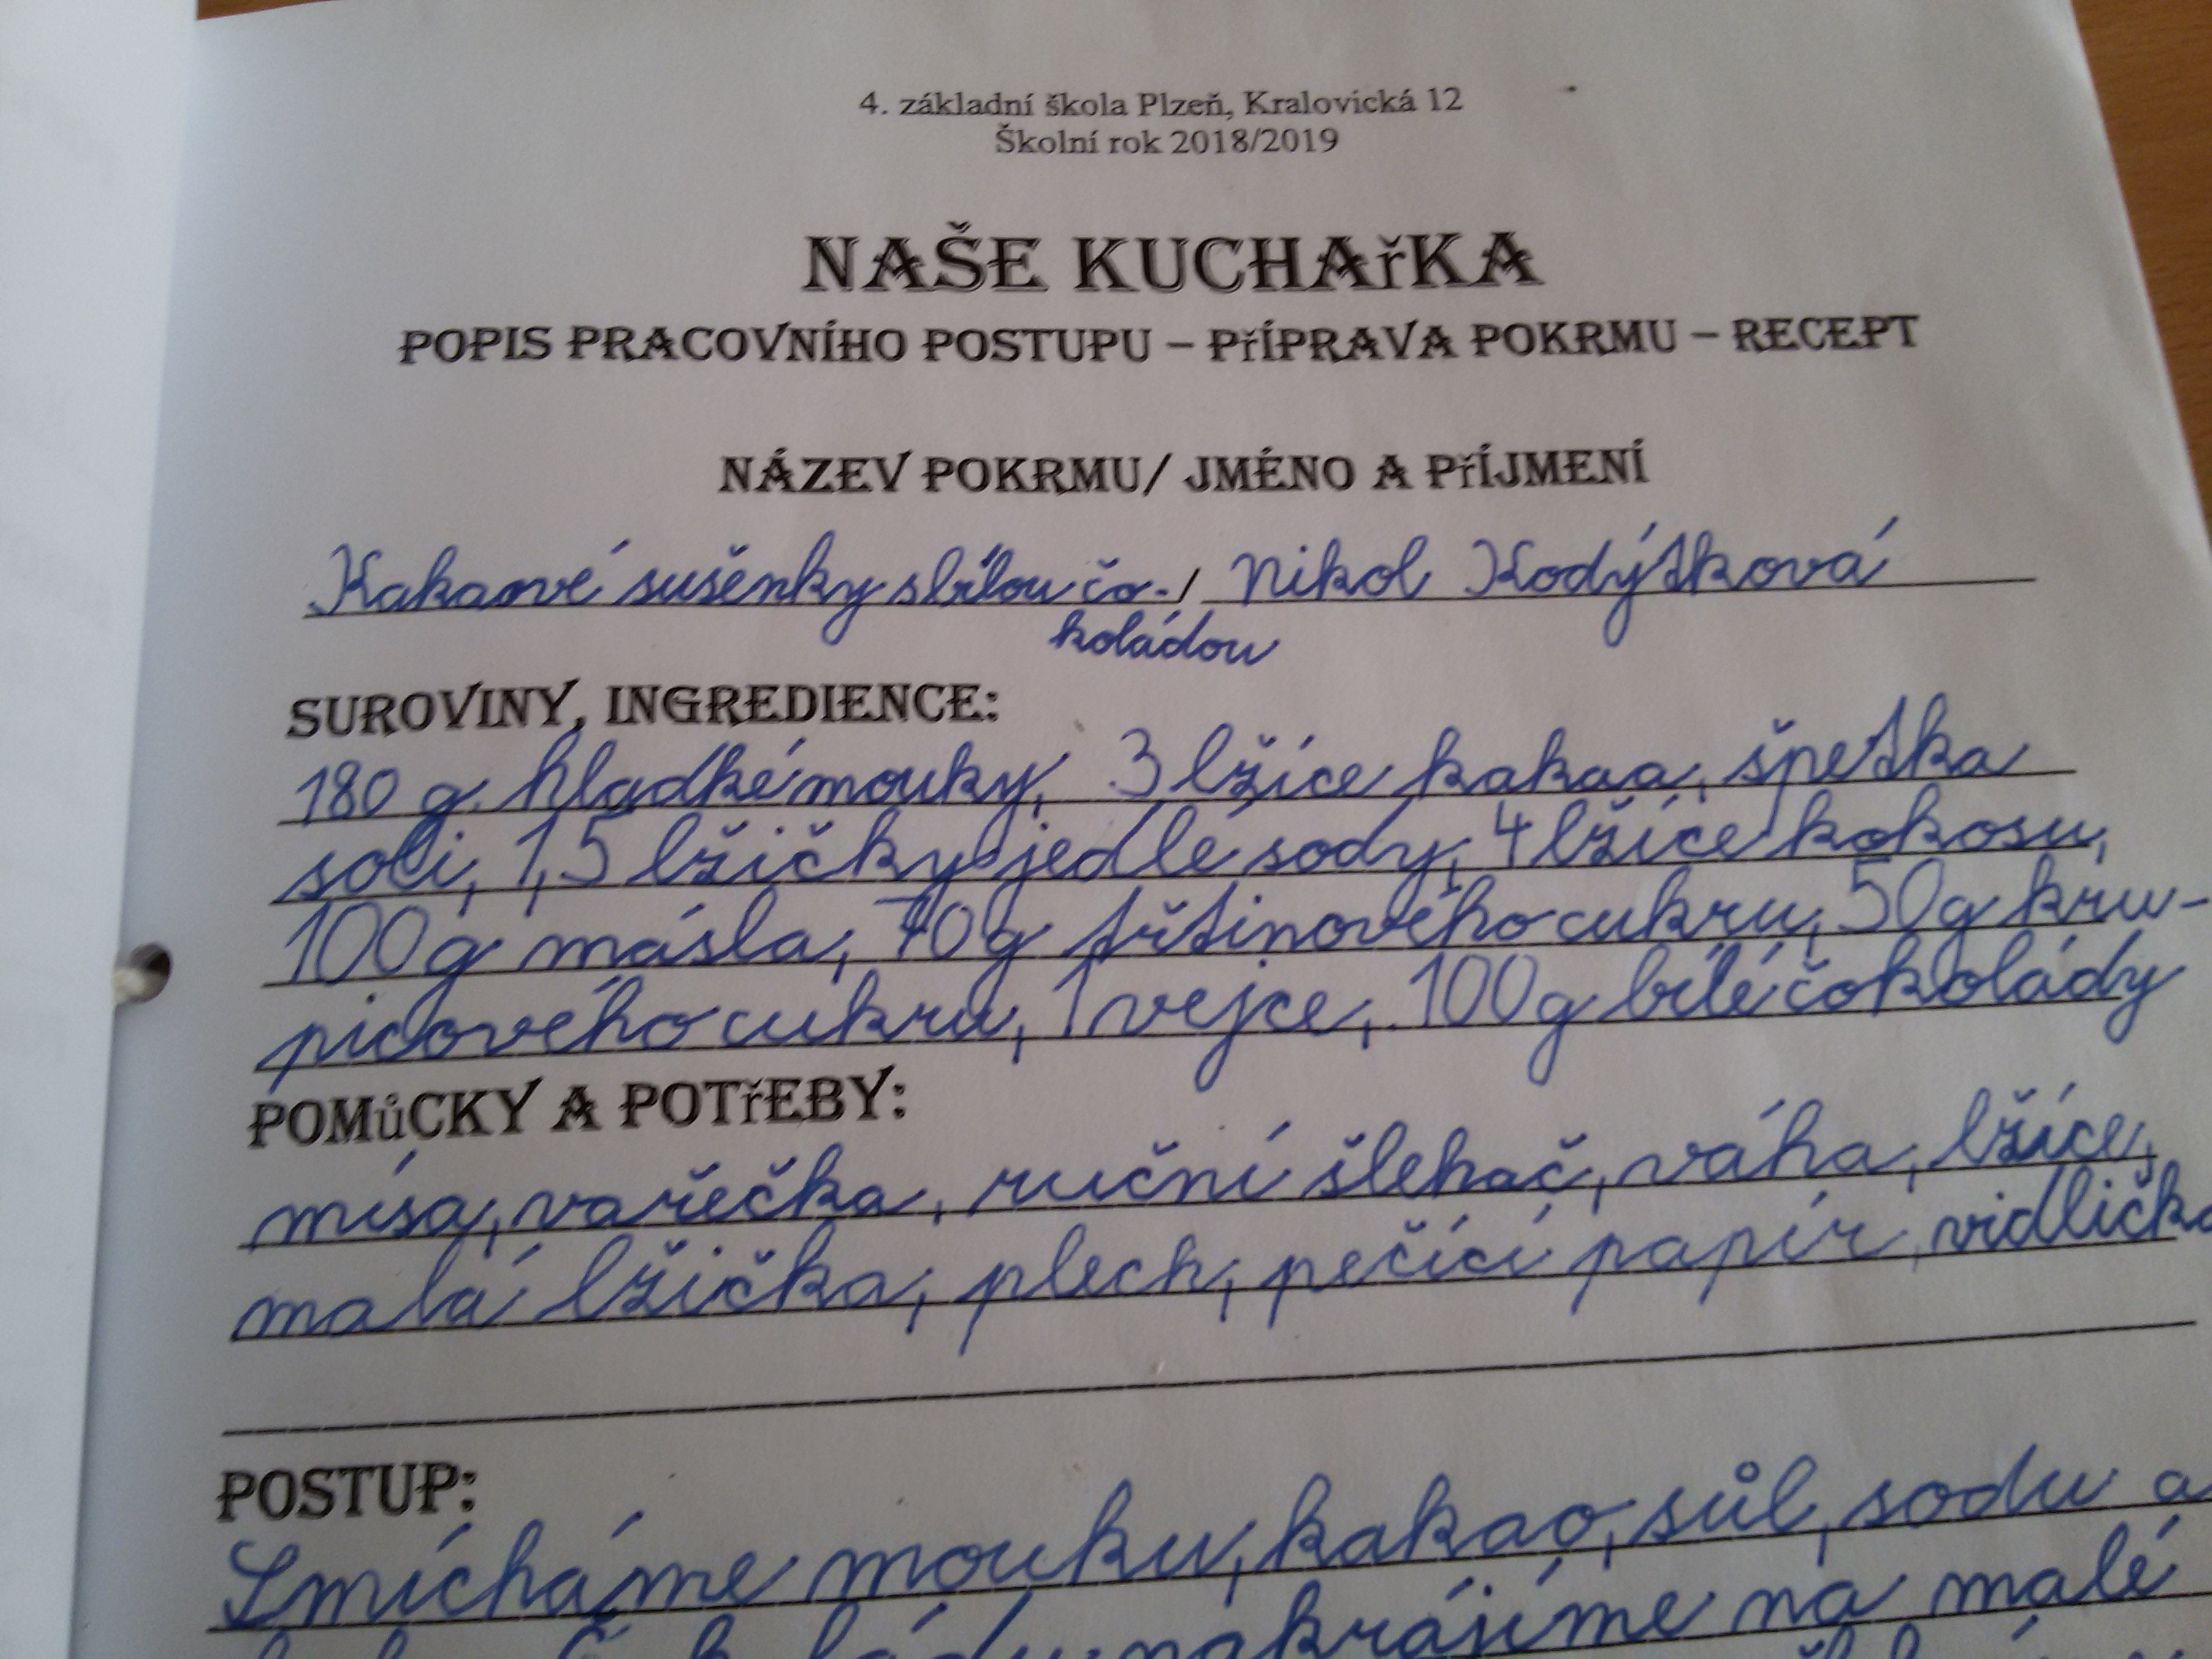 4. základní škola Plzeň, Kralovická 12
Školní rok 2018/2019
NAŠE KUCHAřKA
POPIS PRACOVNÍHO POSTUPU – PŘÍPRAVA POKRMU – RECEPT
NÁZEV POKRMU/ JMÉNO A PŘÍJMENÍ
Kakaové sušenky s bílou čo- / Nikol Kodýtková
koládou
SUROVINY, INGREDIENCE:
180 g hladké mouky, 3 lžíce kakaa, špetka
soli, 1,5 lžičky jedlé sody, 4 lžíce kokosu,
100g másla, 70g třtinového cukru, 50g kru-
picového cukru, 1 vejce, 100g bílé čokolády
POMůCKY A POTřEBY:
mísa, vařečka, ruční šlehač, váha, lžíce,
malá lžička, plech, pečící papír, vidlička
POSTUP:
Smícháme mouku, kakao, sůl, sodu a
nakrájíme na malé